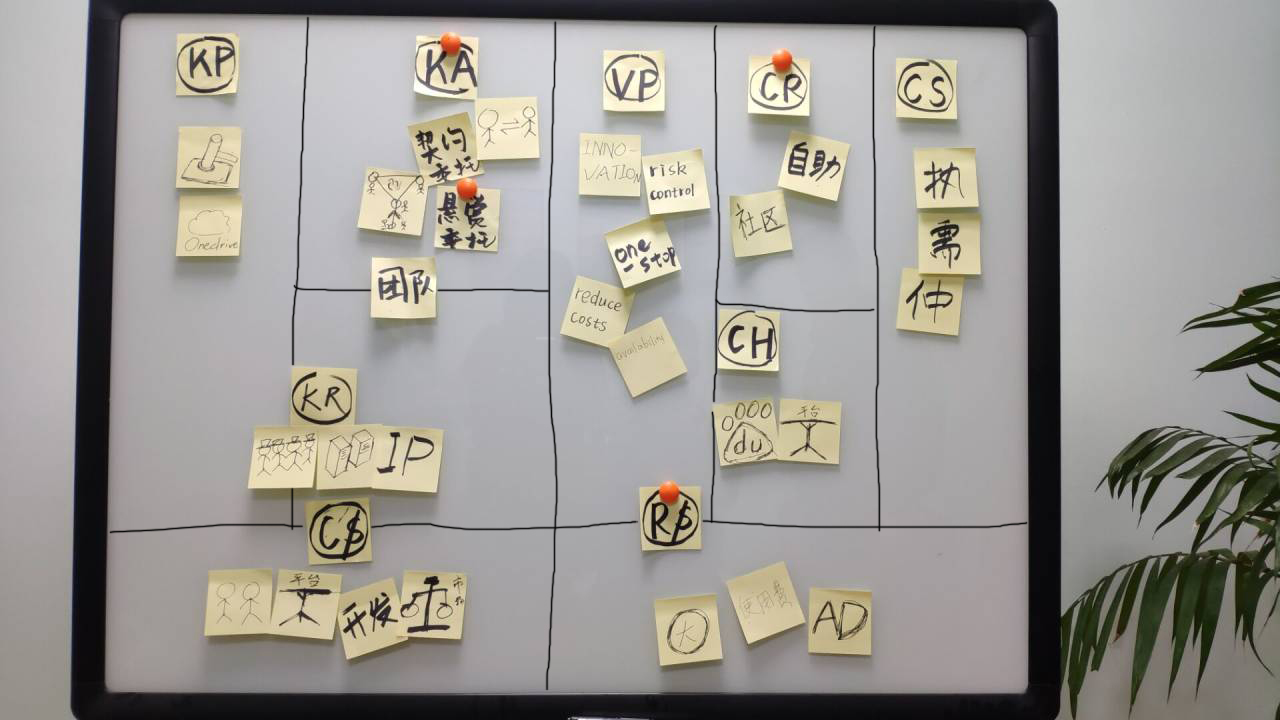 KP
Onedrive
KA
契约
委托
悬赏
委托
团队
KR
IP
VP
INNO-
VATION
risk
control
one
-stop
reduce
costs
availability
CR
自助
社区
CH
du
平台
CS
执
需
仲
C$
平台
开发
R$
大
使用费
AD